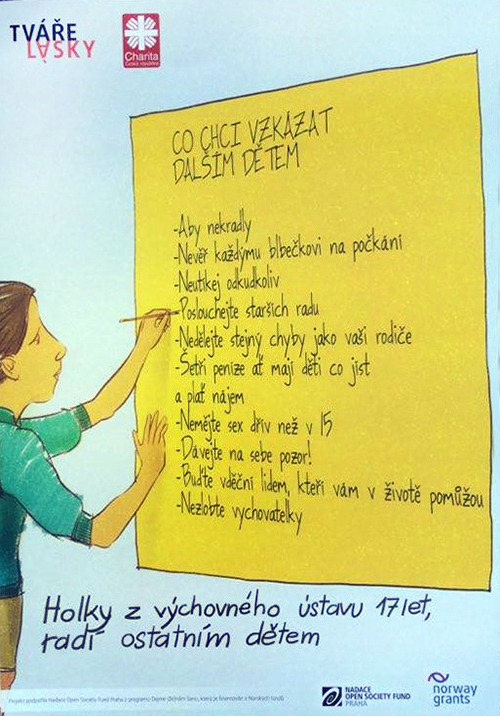 TVÁŘE
LÁSKY
Charita
Česká republika
CO CHCI VZKÁZAT
DALŠÍM DĚTEM
-Aby nekradly
-Nevěř každýmu blbečkovi na počkání
-Neutíkej odkudkoliv
-Poslouchejte starších radu
-Nedělejte stejný chyby jako vaši rodiče
-Šetři peníze ať mají děti co jíst
a plať nájem
-Nemějte sex dřív než v 15
-Dávejte na sebe pozor!
-Buďte vděční lidem, kteří vám v životě pomůžou
-Nezlobte vychovatelky
Holky z výchovného ústavu 17let,
radí ostatním dětem
Projekt podpořila Nadace Open Society Fund Praha z programu Dejme (že)nám šanci, který je financován z Norských fondů.
NADACE
OPEN SOCIETY FUND
PRAHA
norway
grants